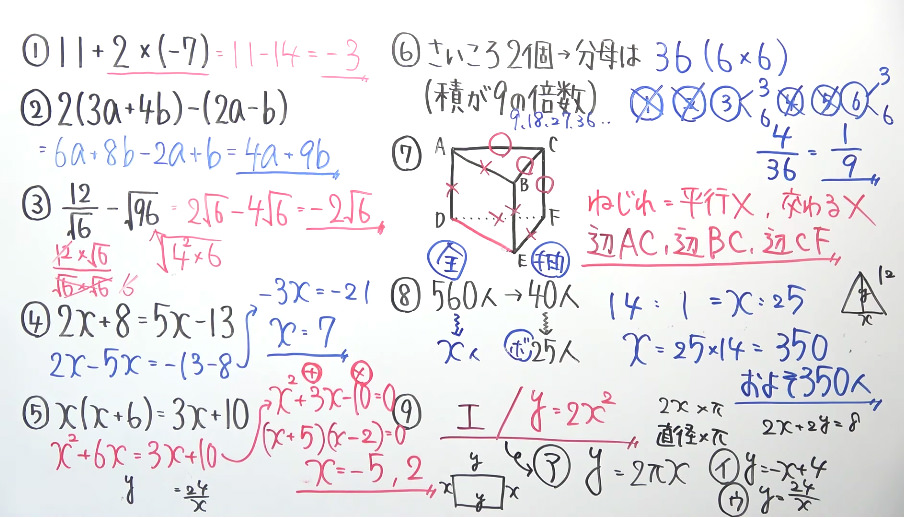 ① 11+2×(-7)=11-14=-3
② 2(3a+4b)-(2a-b)
=6a+8b-2a+b=4a+9b
③ 12/√6-√96=2√6-4√6=-2√6
12×√6/√6×√6 6
√4²×6
④ 2x+8=5x-13
2x-5x=-13-8
-3x=-21
x=7
⑤ x(x+6)=3x+10
x²+6x=3x+10
+ ×
x²+3x-10=0
(x+5)(x-2)=0
x=-5,2
y =24/x
⑥ さいころ2個→分母は 36(6×6)
(積が9の倍数)
9.18.27.36...
① ② ③ 3 6 ④ ⑤ ⑥ 3 6
4/36=1/9
⑦
A C
B
D F
E
ねじれ=平行×,交わる×
辺AC,辺BC,辺CF
全
⑧ 560人→40人
x人 ㋭ 25人
14:1=x:25
x=25×14=350
およそ350人
12
y
x
⑨ エ/y=2x²
2x×π
直径×π
2x+2y=8
y
x x
y
ア y=2πx
イ y=-x+4
ウ y=24/x